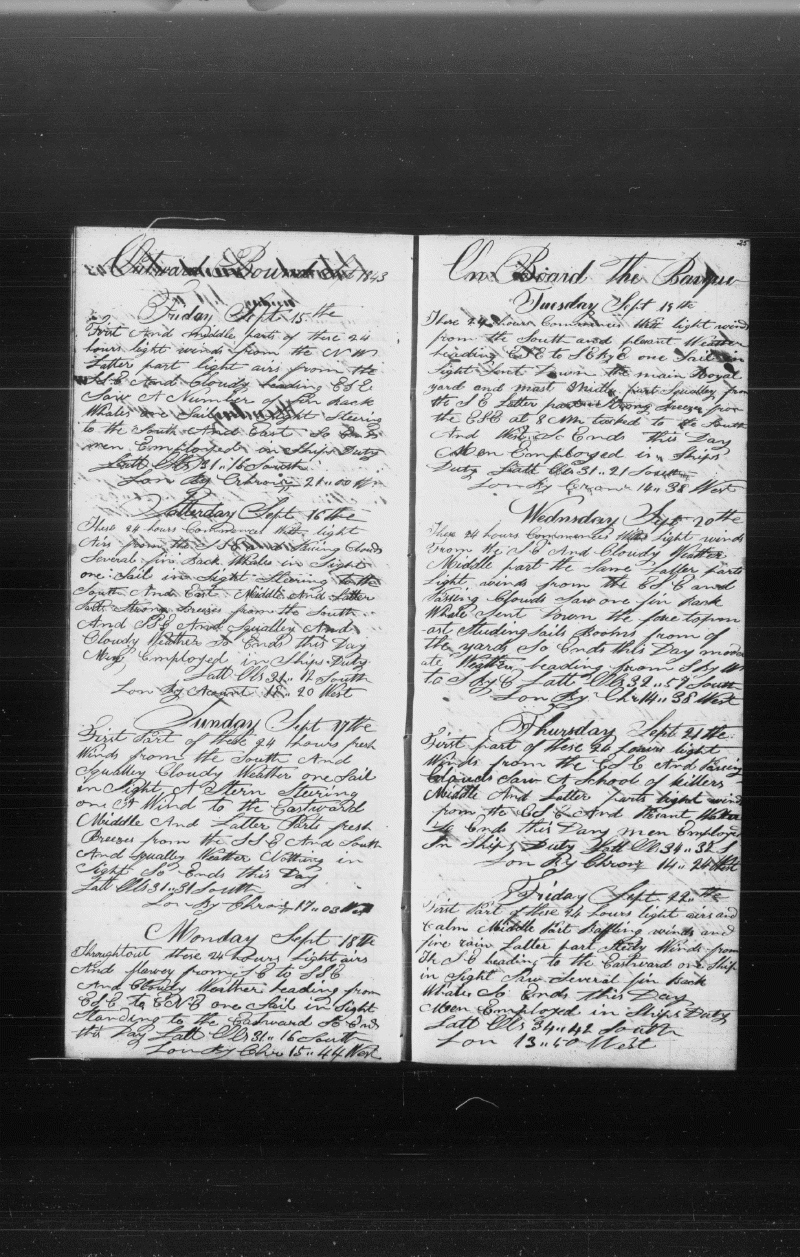 Outward Bound 1843
Friday Sept 15 the
First And middle parts of these 24
hours light winds from the N W
Latter part light airs from the
S S E And Cloudy heading E S E
Saw A Number of fin back
Whales one Sail in Sight Steering
to the South And East So Ends
men Employed in Ships Duty
Latt Obs 31 " 16 South
Lon By Chron 21 " 00 Wn
Satterday Sept 16 the
These 24 hours Commences With light
Airs from the Clouds
Several fin Back Whales in Sight
one Sail in Sight Steering to the
South And East Middle And Latter
Parts Strong Breezes from the South
And S S E And Squalley And
Cloudy Weather So Ends this Day
Men Employed in Ships Duty
Latt Obs 31 " 12 South
Lon By Acount 18 " 20 West
Sunday Sept 17 the
First Part of these 24 hours fresh
Winds from the South And
Squalley Cloudy Weather one Sail
in Sight A Stern Steering
on A Wind to the Eastward
Middle And Latter Parts fresh
Breezes from the S S E And South
And Squalley Weather Nothing in
Sight So Ends this Day
Latt Obs 31 " 31 South
Lon By Chron 17 " 03 West
Monday Sept 18 the
Throughout these 24 hours Light airs
And from S E to S S E
And Cloudy Weather heading from
E S E to E N E one Sail in Sight
Standing to the Eastward So Ends
this Day Latt Obs 31 " 16 South
Lon By Chr 15 " 44 West
25
On Board The Barque
Tuesday Sept 19 the
These 24 hours Commences With light winds
from the South and pleasant Weather
heading E S E to S E By E one Sail in
Sight Sent Down the main Royal
yard and mast Middle part Squalley from
the S E Latter part Strong Breezes from
the E S E at 8 AM tacked to the South
And West So Ends this Day
Men Employed in Ships
Duty Latt Obs 31 " 21 South
Lon By Cron 14 " 38 West
Wednsday Sept 20 the
These 24 hours Commences With Light winds
From the S E And Cloudy Weather
Middle part the Same Latter parts
Light winds from the E S E and
Passing Clouds Saw one fin Back
Whale Sent Down the fore topm
ast Studingsails Booms from of
the yards So Ends this Day moder
ate Weather heading from S By W
to S By E Latt Obs 32 " 52 South
Lon By Chr 14 " 38 West
Thursday Sept 21 the
First part of these 24 hours light
Winds from the E S E And Passing
Clouds Saw A School of killers
Middle And Latter parts light winds
from the E S E And Pleasant Weather
So Ends this Dany men Employed
In Ships Duty Latt Obs 34 " 32 S
Lon By Chron 14 " 24 West
Friday Sept 22 the
First Part of these 24 hours light airs and
Calm Middle Part Baffling winds and
fine rain Latter part Steady Winds from
The S E heading to the Eastward one Ship
in Sight Saw Several fin Back
Whales So Ends this Day
Men Employed in Ships Duty
Latt Obs 34 " 42 South
Lon 13 " 50 West